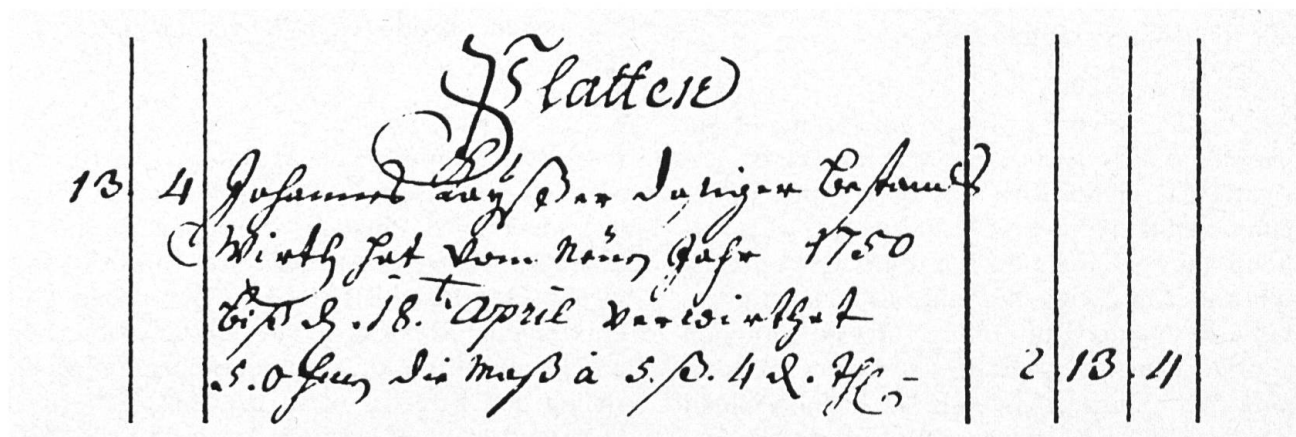 Platten
13. 4 Johannes Kayßer dasiger Bestands
Wirth hat vom Neüen Jahr 1750
biß d. 18.t April verwirthet
5. Ohmen die Maß à 5. ß. 4 d. Th 2. 13. 4